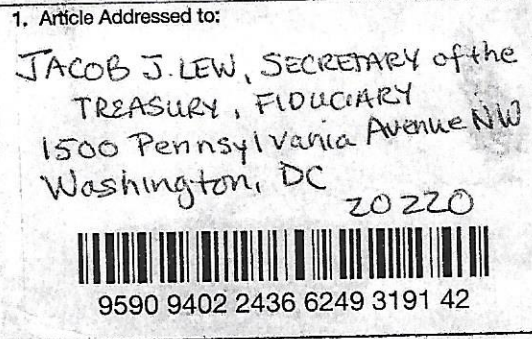 1. Article Addressed to:
JACOB J. LEW, SECRETARY of the
TREASURY, FIDUCIARY
1500 Pennsylvania Avenue NW
Washington, DC
20220
9590 9402 2436 6249 3191 42